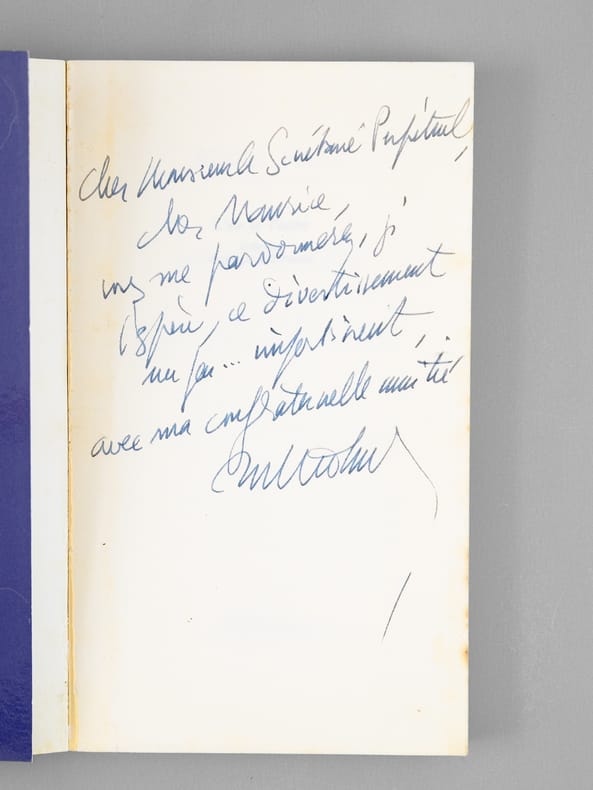 Cher Monsieur le Secrétaire Perpétuel,
cher Maurice,
vous me pardonnerez, j'
espère, ce divertissement
un peu... impertinent,
avec ma confraternelle amitié